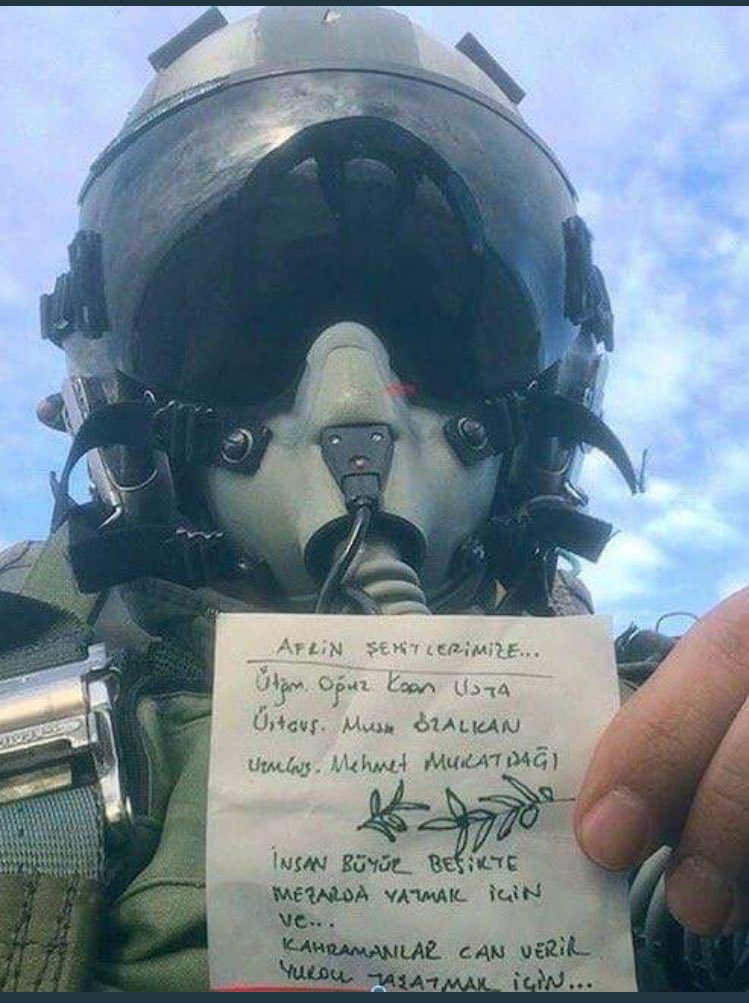 AFRİN ŞEHİTLERİMİZE...
Ütğm. Oğuz Kaan USTA
Üstçvş. Musa ÖZALKAN
Uzm.Çvş. Mehmet MURATDAĞI
İNSAN BÜYÜR BEŞİKTE
MEZARDA YATMAK İÇİN
VE...
KAHRAMANLAR CAN VERİR
YURDU YAŞATMAK İÇİN...